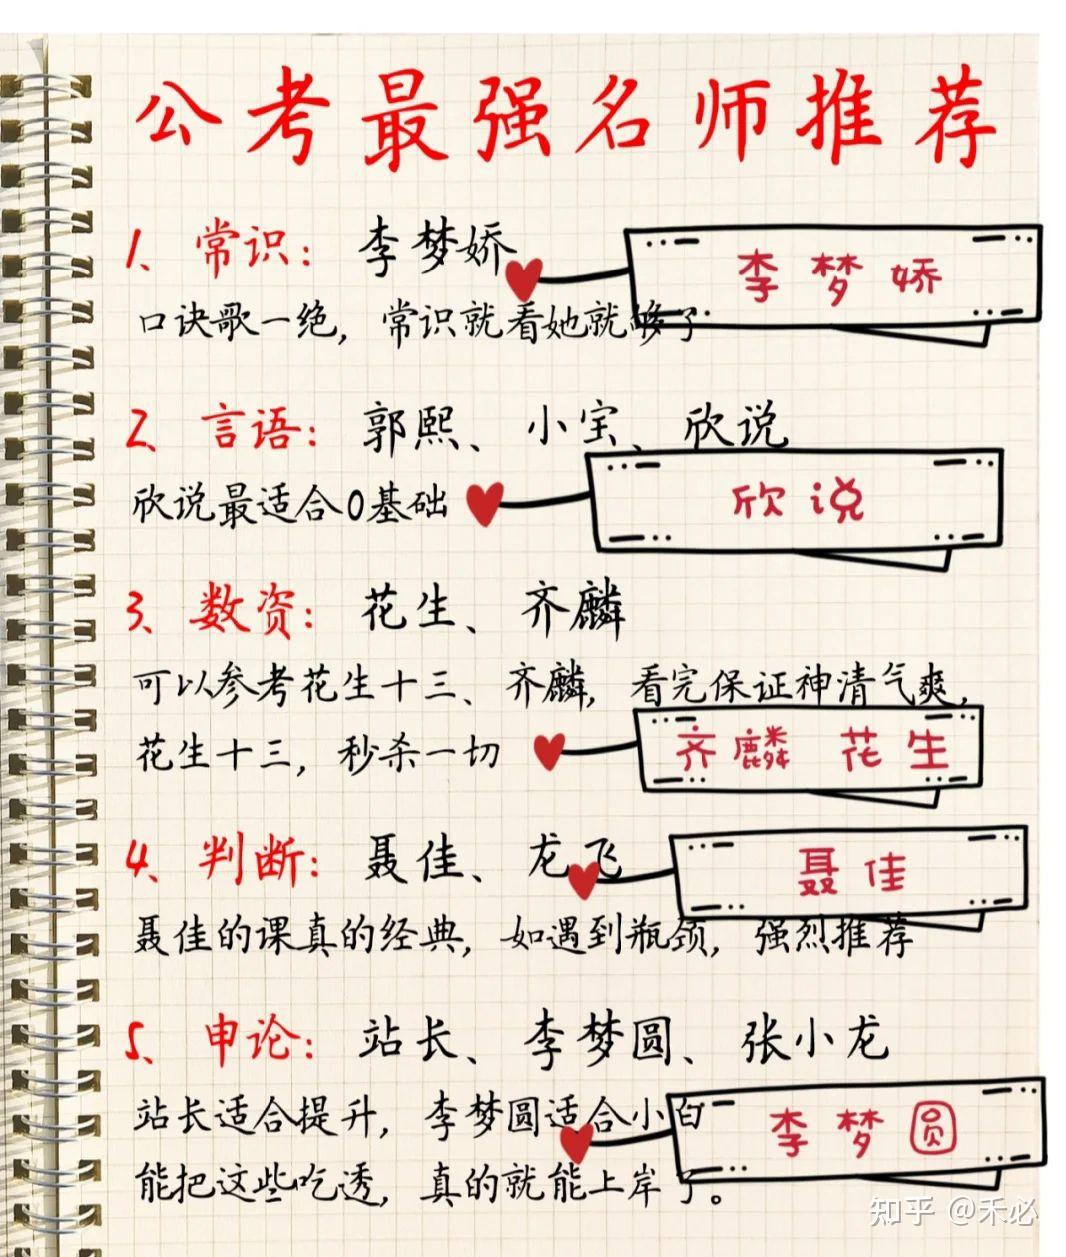 公考最强名师推荐
1、常识：李梦娇
李梦娇
口诀歌一绝，常识就看她就够了
2、言语：郭熙、小宝、欣说
欣说最适合0基础
欣说
3、数资：花生、齐麟
可以参考花生十三、齐麟，看完保证神清气爽，
花生十三，秒杀一切
齐麟 花生
4、判断：聂佳、龙飞
聂佳
聂佳的课真的经典，如遇到瓶颈，强烈推荐
5、申论：站长、李梦圆、张小龙
站长适合提升，李梦圆适合小白
李梦圆
能把这些吃透，真的就能上岸了。
知乎 @禾必